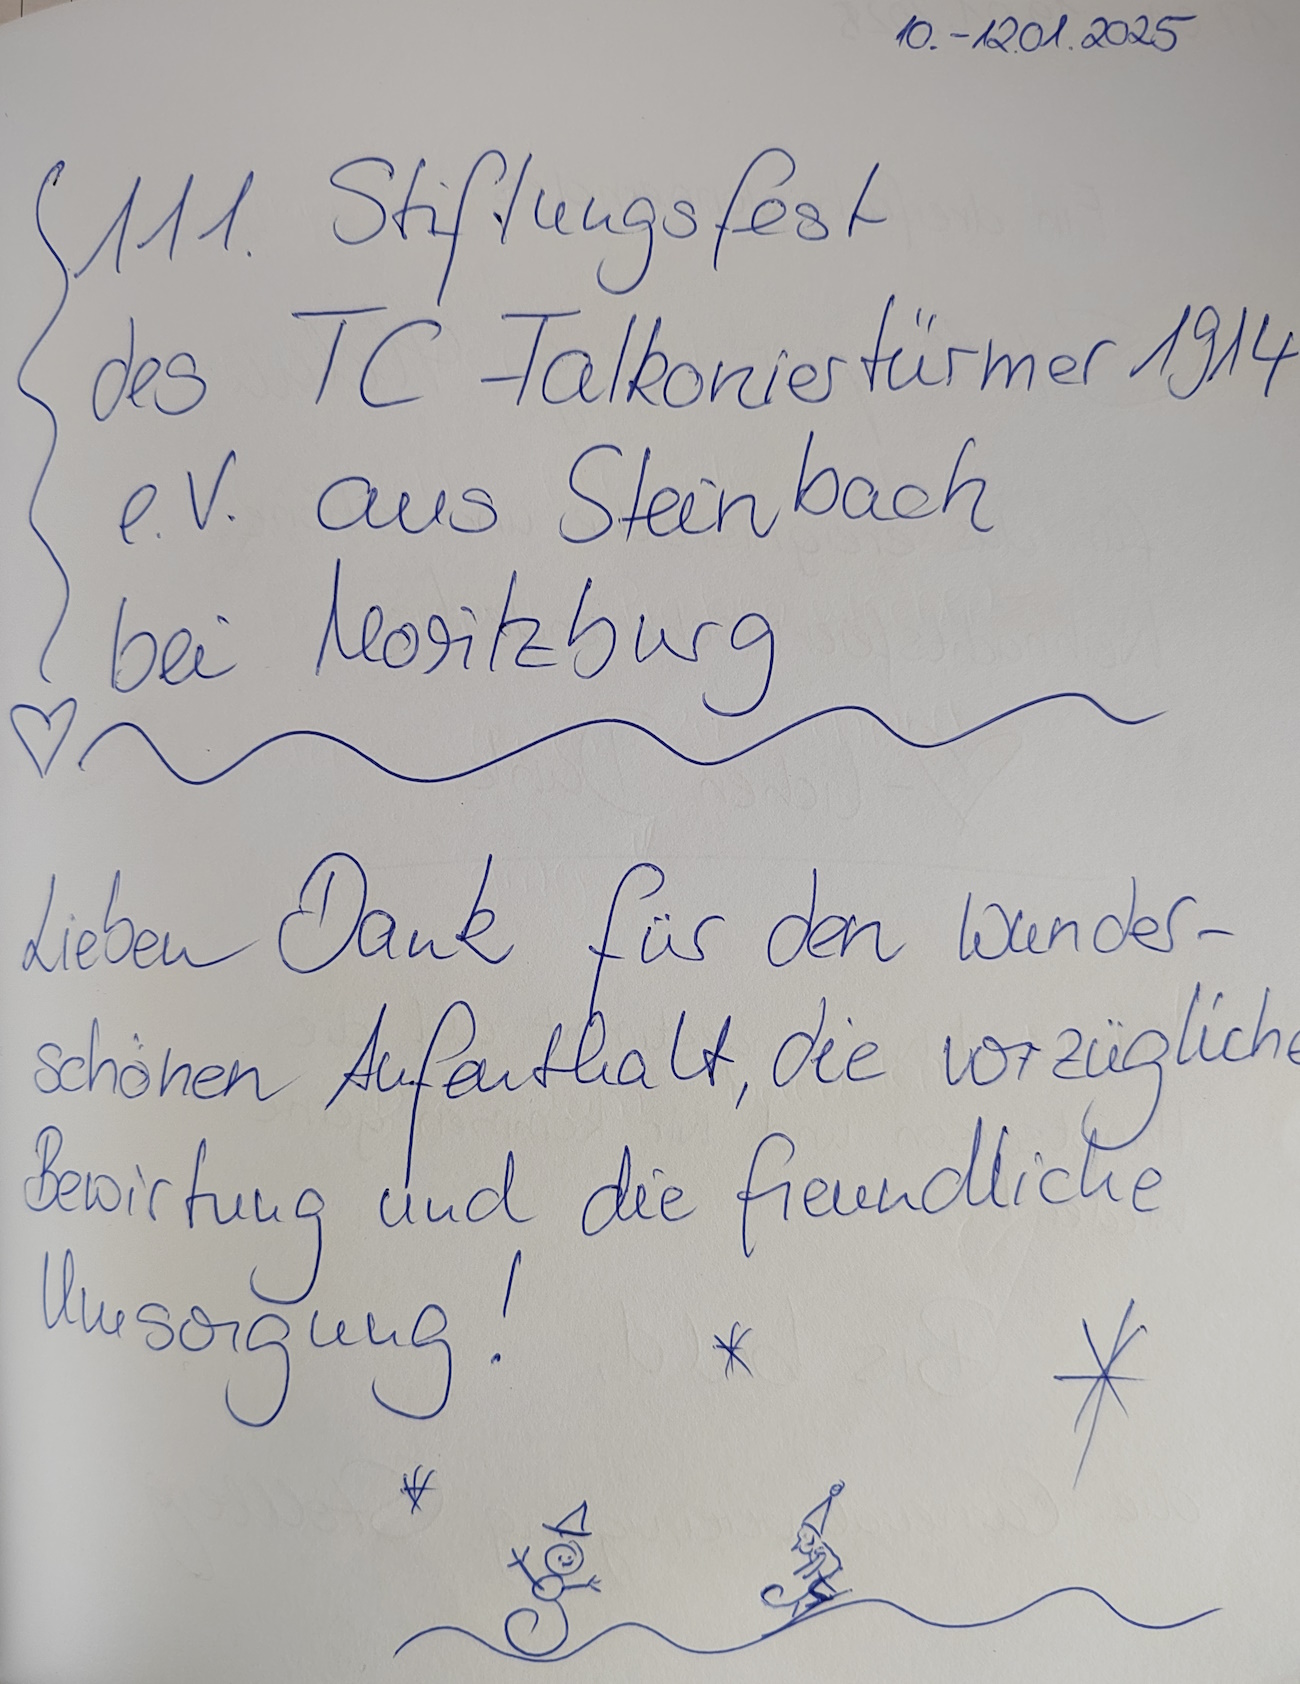 10.-12.01.2025
111. Stiftungsfest
des TC Falkoniertürmer 1914
e.V. aus Steinbach
bei Moritzburg
Lieben Dank für den wunder-
schönen Aufenthalt, die vorzügliche
Bewirtung und die freundliche
Umsorgung!